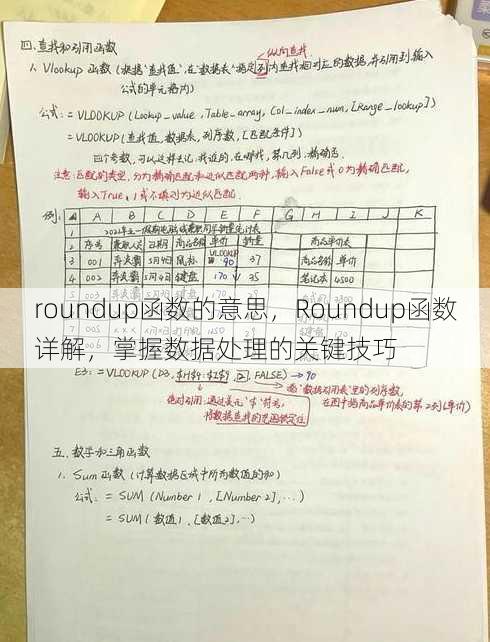 四、查找和引用函数
纵向查找
1、Vlookup函数(根据"查找值",在"数据表"指定列内查找相对应的数据,并引用到输入
公式的单元格内)
公式:=VLOOKUP(Lookup_value,Table_array,Col_index_num,[Range_lookup])
=VLOOKUP(查找值,数据表,列序数,[匹配条件])
四个参数,可以这样去记:我近的,在哪找,第几列,精确否.
注意:匹配的类型,分为精确匹配和近似匹配两种,输入False或0为精确匹配,
输入True、1或不填则为近似匹配.
例:
A B C D E F G H I J K
1 2021年五一假期电脑城兼职同学销量统计表
2 序号 兼职人员 日期 商品名称 单价 销量 商品单价表
3 001 乔太霸 5月4日 鼠标 VLOOKUP 90 37 商品名称 单价
4 002 乔太霸 5月4日 键盘 170 35 笔记本 4500
5 003 显示器
roundup函数的意思,Roundup函数
详解,掌握数据处理的关键技巧
E3:=VLOOKUP(D3,$H$4:$I$9,2,FALSE)→90
绝对引用:通过美元"$"符号,
将数据查找的范围锁定住
"数据引用表"里的列序数,
在图中指商品单价表的第2列(单价)
五、数学和三角函数
1、Sum函数(计算数据区域中所有数值的和)
公式:=SUM(Number1,[Number2],...)
=SUM(数值1,[数值2],...)